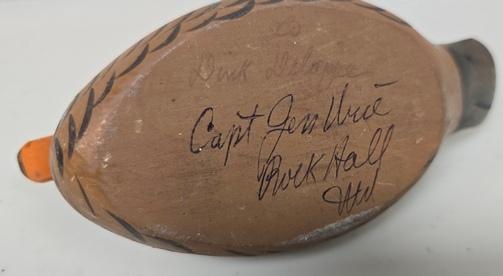 to
Dick
Capt Jess Urie
Rock Hall
Md